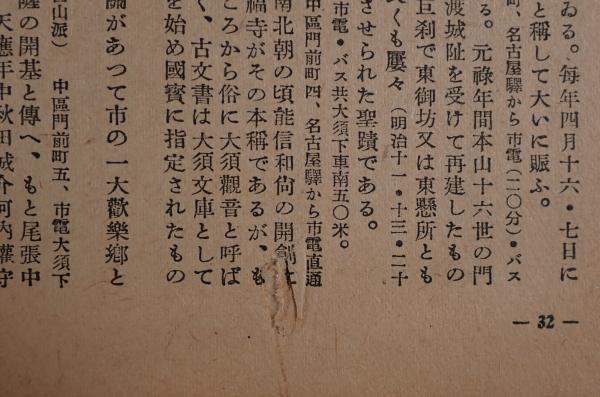 ゐる。每年四月十六・七日に
と稱して大いに賑ふ。
町、名古屋驛から市電(二〇分)・バス
る。元祿年間本山十六世の門
渡城阯を受けて再建したもの
巨刹で東御坊又は東懸所とも
くも屢々(明治十一・十三・二十
させられた聖蹟である。
市電・バス共大須下車南五〇米。
中區門前町四、名古屋驛から市電直通
南北朝の頃能信和尙の開創
福寺がその本稱であるが、も
ころから俗に大須觀音と呼ば
く、古文書は大須文庫として
を始め國寶に指定されたもの
があつて市の一大歡樂鄕と
山派) 中區門前町五、市電大須下
の開基と傳へ、もと尾張中
天應年中秋田城介河內權守
— 32 —